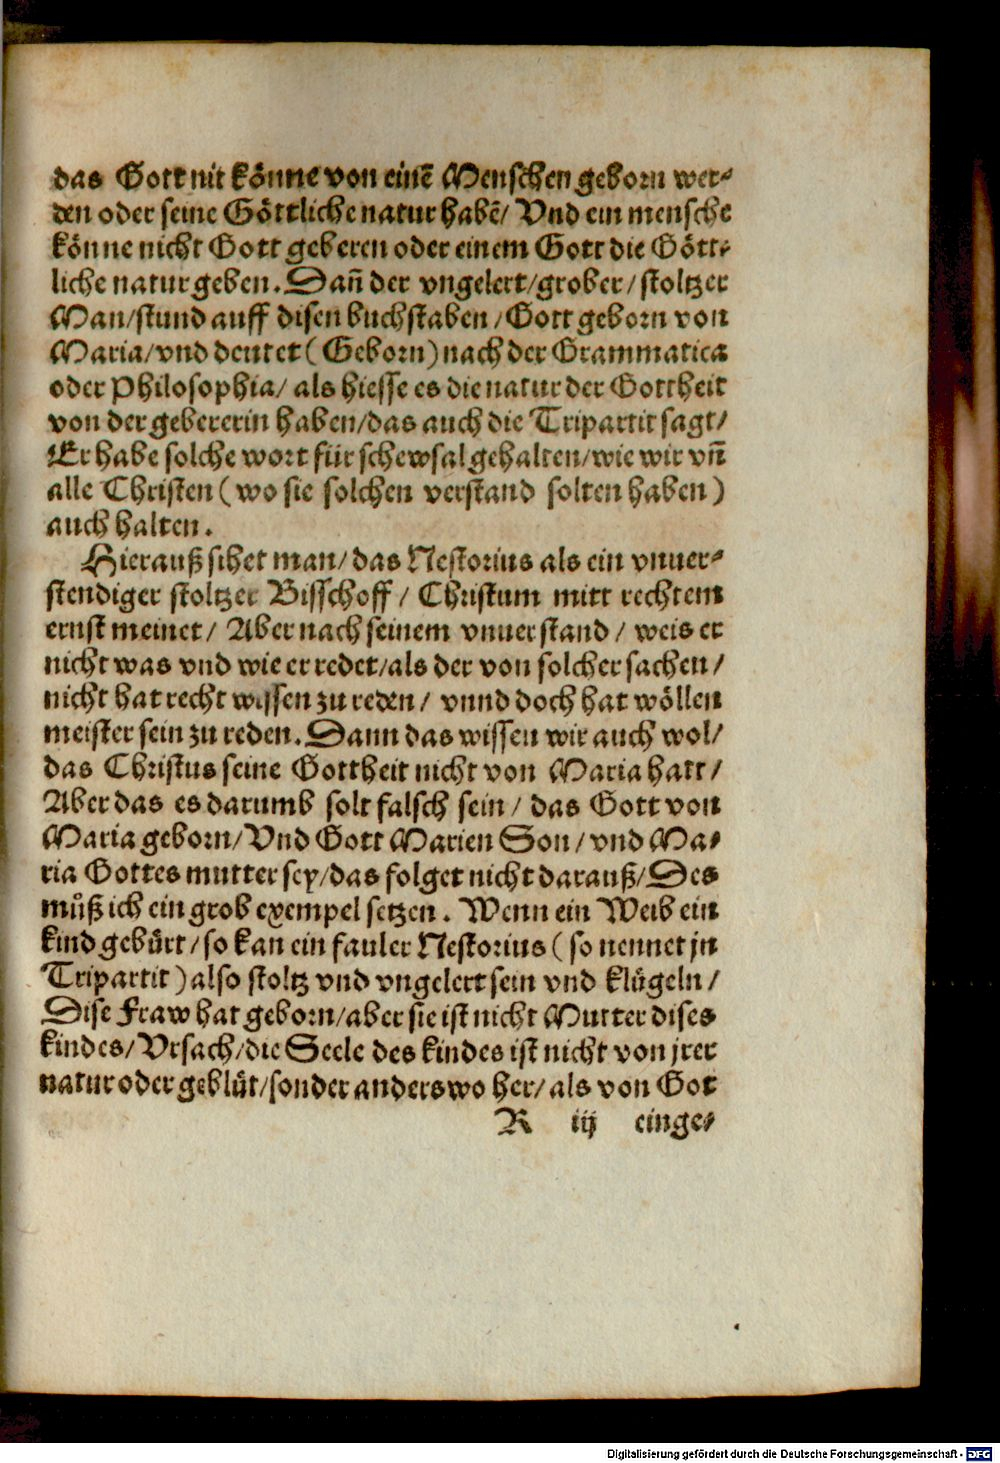 das Gott nit könne von einē Menschen geborn wer-
den oder seine Göttliche natur habē/ Vnd ein mensche
könne nicht Gott geberen oder einem Gott die Gött-
liche natur geben. Dañ der vngelert/grober/stoltzer
Man/stund auff disen buchstaben/Gott geborn von
Maria/vnd deutet (Geborn) nach der Grammatica
oder Philosophia/ als hiesse es die natur der Gottheit
von der gebererin haben/das auch die Tripartit sagt/
Er habe solche wort für schewsal gehalten/wie wir vñ
alle Christen (wo sie solchen verstand solten haben)
auch halten.
Hierauß sihet man/das Nestorius als ein vnuer-
stendiger stoltzer Bisschoff/ Christum mitt rechtem
ernst meinet/ Aber nach seinem vnuerstand/ weis er
nicht was vnd wie er redet/als der von solcher sachen/
nicht hat recht wissen zu reden/ vnnd doch hat wöllen
meister sein zu reden. Dann das wissen wir auch wol/
das Christus seine Gottheit nicht von Maria hatt/
Aber das es darumb solt falsch sein/ das Gott von
Maria geborn/Vnd Gott Marien Son/vnd Ma-
ria Gottes mutter sey/das folget nicht darauß/Des
můß ich ein grob exempel setzen. Wenn ein Weib ein
kind gebürt/so kan ein fauler Nestorius (so nennet jn
Tripartit) also stoltz vnd vngelert sein vnd klügeln/
Dise Fraw hat geborn/aber sie ist nicht Mutter dises
kindes/Vrsach/die Seele des kindes ist nicht von jrer
natur oder geblüt/sonder anderswo her/als von Got
R iij einge-
Digitalisierung gefördert durch die Deutsche Forschungsgemeinschaft - DFG